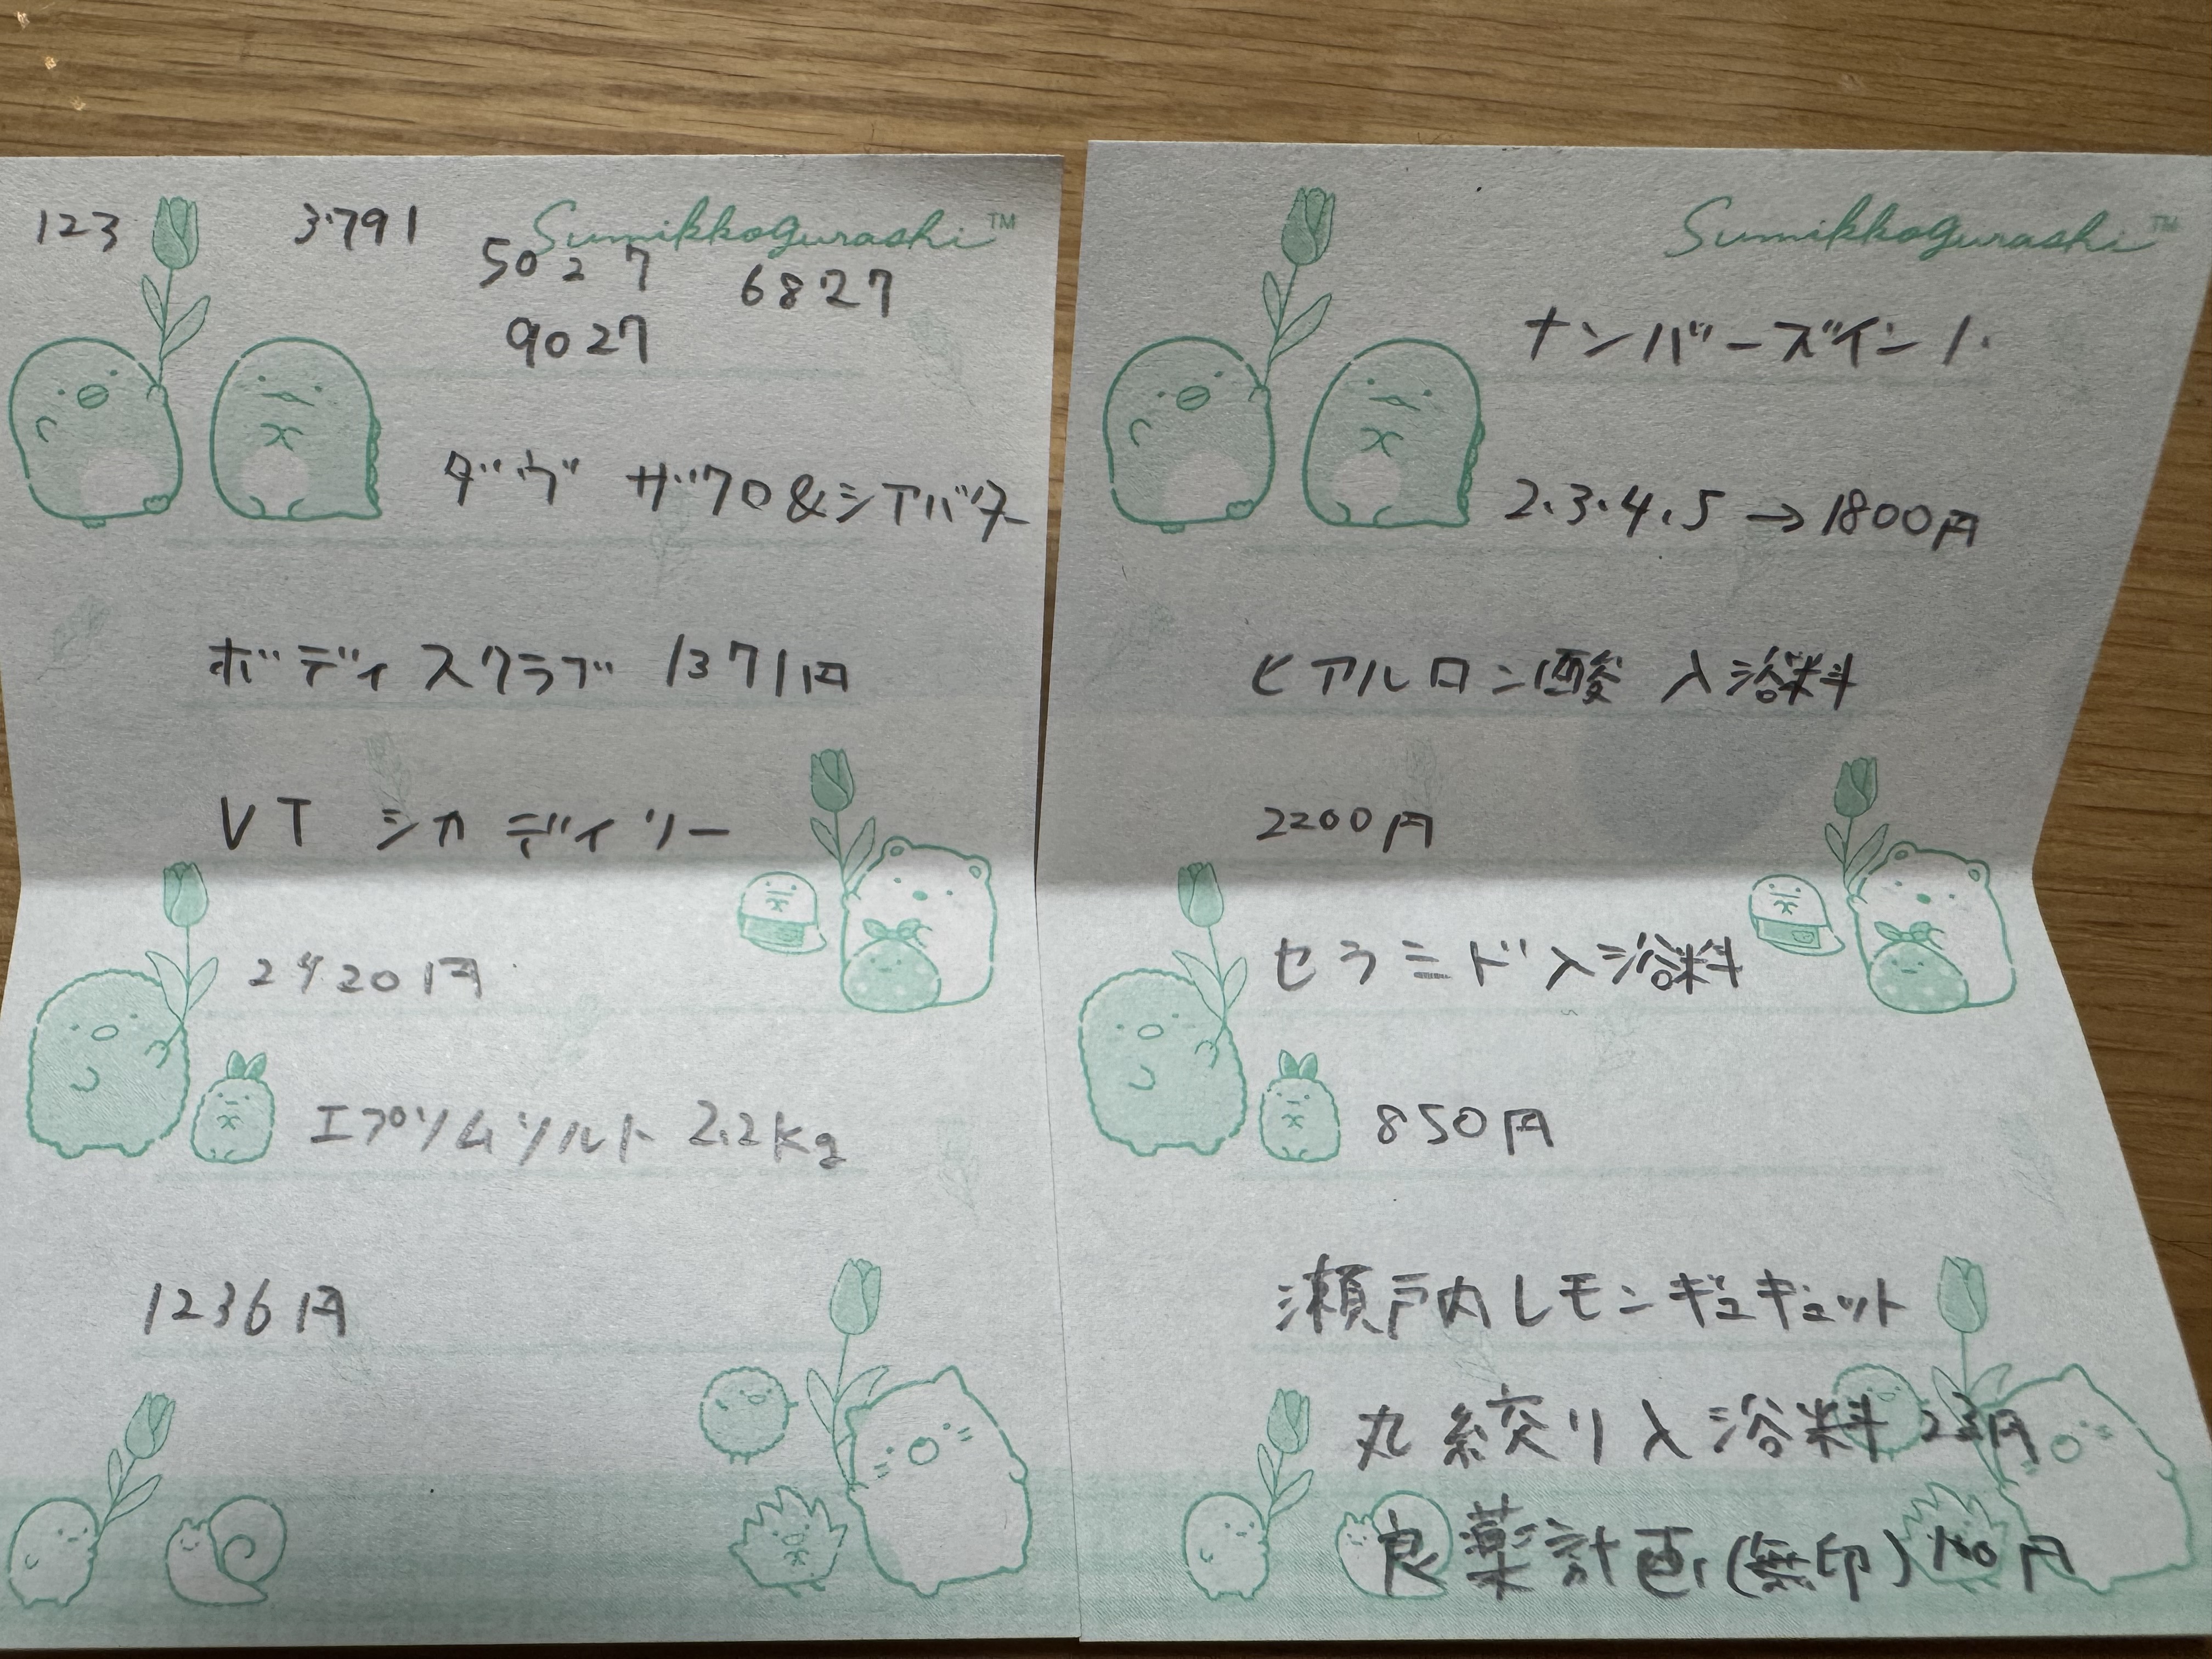 Sumikkogurashi™
123 3791
5027 6827
9027
ダヴ ザクロ&シアバター
ボディスクラブ 1371円
VT シカ デイリー
2420円
エプソムソルト 2.2kg
1236円
Sumikkogurashi™
ナンバーズイン 1.
2.3.4.5→1800円
ヒアルロン酸 入浴料
2200円
セラミド入浴料
850円
瀬戸内レモンギュギュット
丸絞り入浴料 円
良薬計画(無印) 円